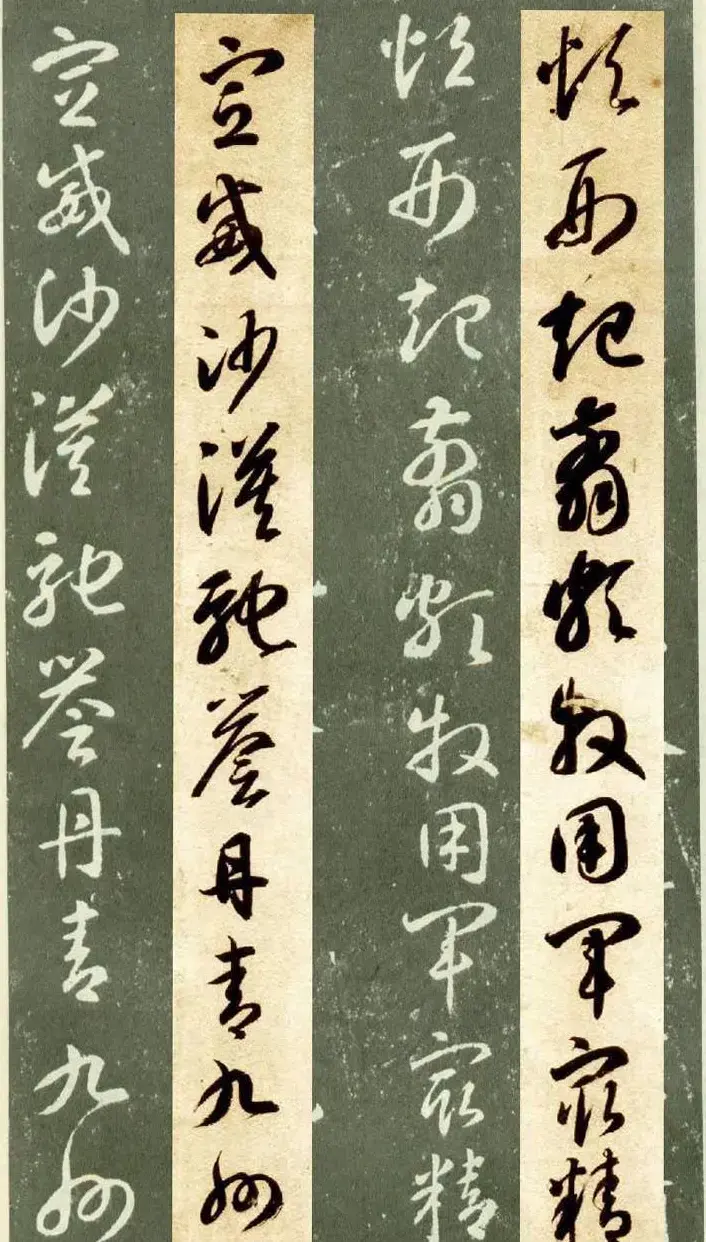 煩刑起翦頗牧用軍最精
煩刑起翦頗牧用軍最精
宣威沙漠馳譽丹青九州
宣威沙漠馳譽丹青九州